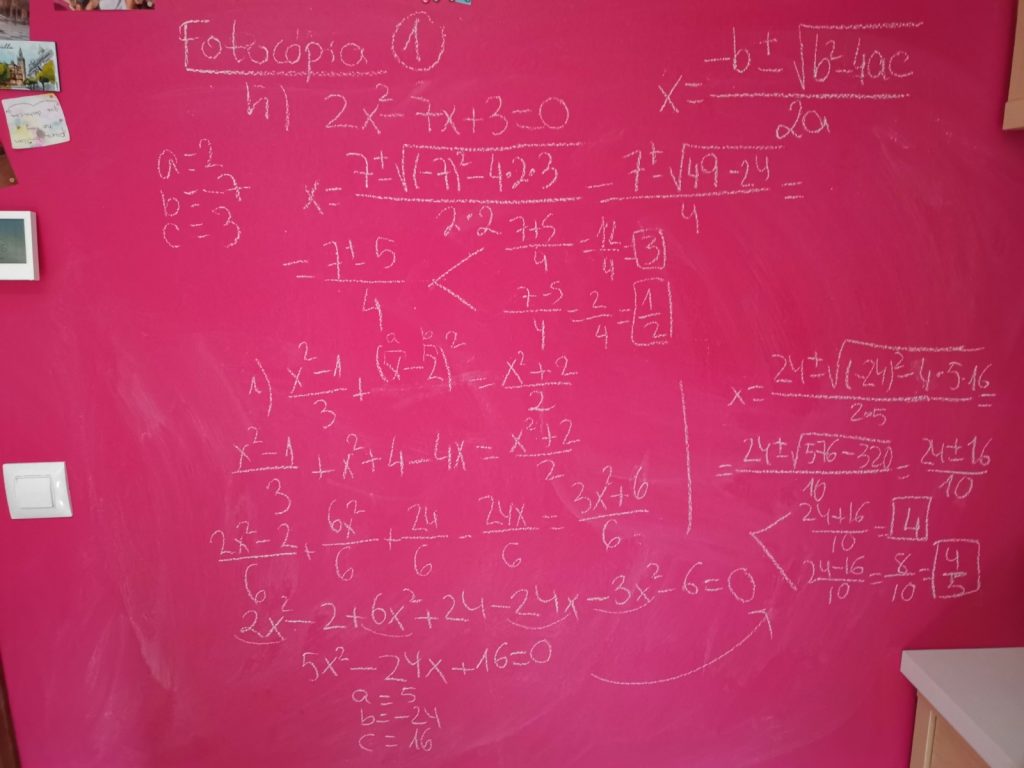 Fotocópia 1
x = (-b ± √(b² - 4ac)) / 2a
h) 2x² - 7x + 3 = 0
a = 2
b = -7
c = 3
x = (7 ± √((-7)² - 4·2·3)) / 2·2 = (7 ± √(49 - 24)) / 4 =
= (7 ± 5) / 4
(7+5)/4 = 12/4 = 3
(7-5)/4 = 2/4 = 1/2
1) (x² - 1)/3 + (x - 2)² = (x² + 2)/2
a b
(x² - 1)/3 + x² + 4 - 4x = (x² + 2)/2
(2x² - 2)/6 + 6x²/6 + 24/6 - 24x/6 = (3x² + 6)/6
2x² - 2 + 6x² + 24 - 24x - 3x² - 6 = 0
5x² - 24x + 16 = 0
a = 5
b = -24
c = 16
x = (24 ± √((-24)² - 4·5·16)) / 2·5 =
= (24 ± √(576 - 320)) / 10 = (24 ± 16) / 10
(24+16)/10 = 4
(24-16)/10 = 8/10 = 4/5